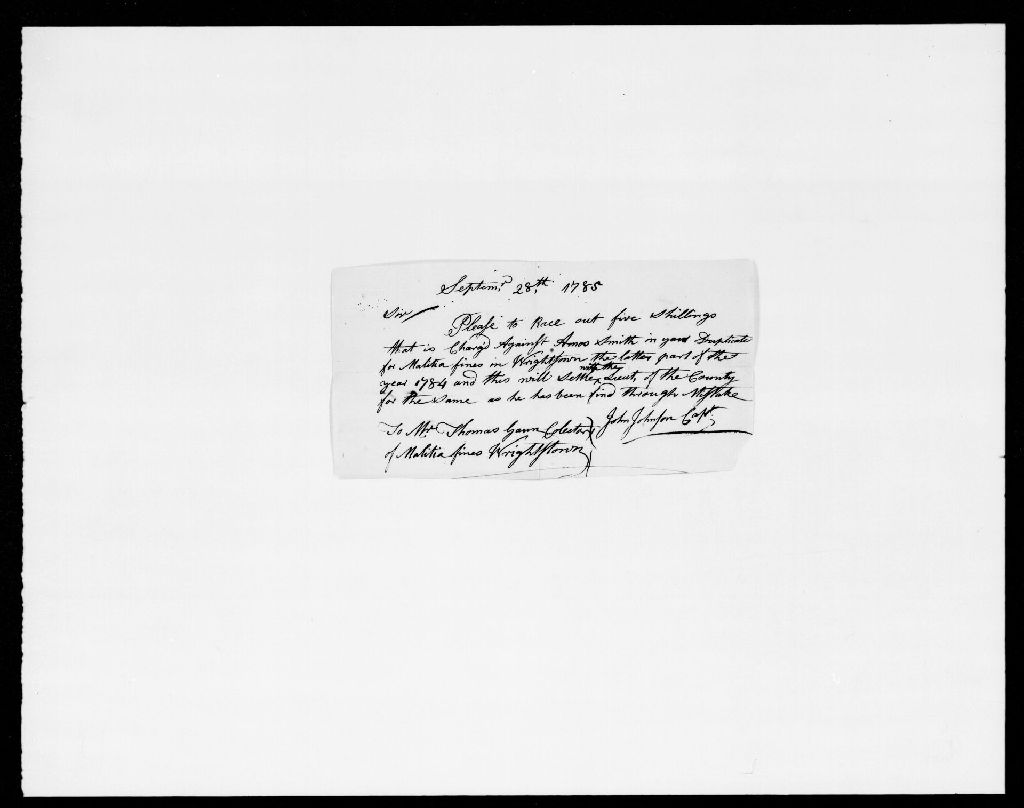 Septimr. 28th. 1785
Sir
Please to Race out five Shillings
that is Chargd Against Amos Smith in your Duplicate
for Malitia fines in Wrightstown the latter part of the
year 1784 and this will Settle with the Lieut. of the County
for the Same as he has been find through Mistake
John Johnson Capt.
To Mr. Thomas Gawn Colector
of Malitia fines Wrightstown